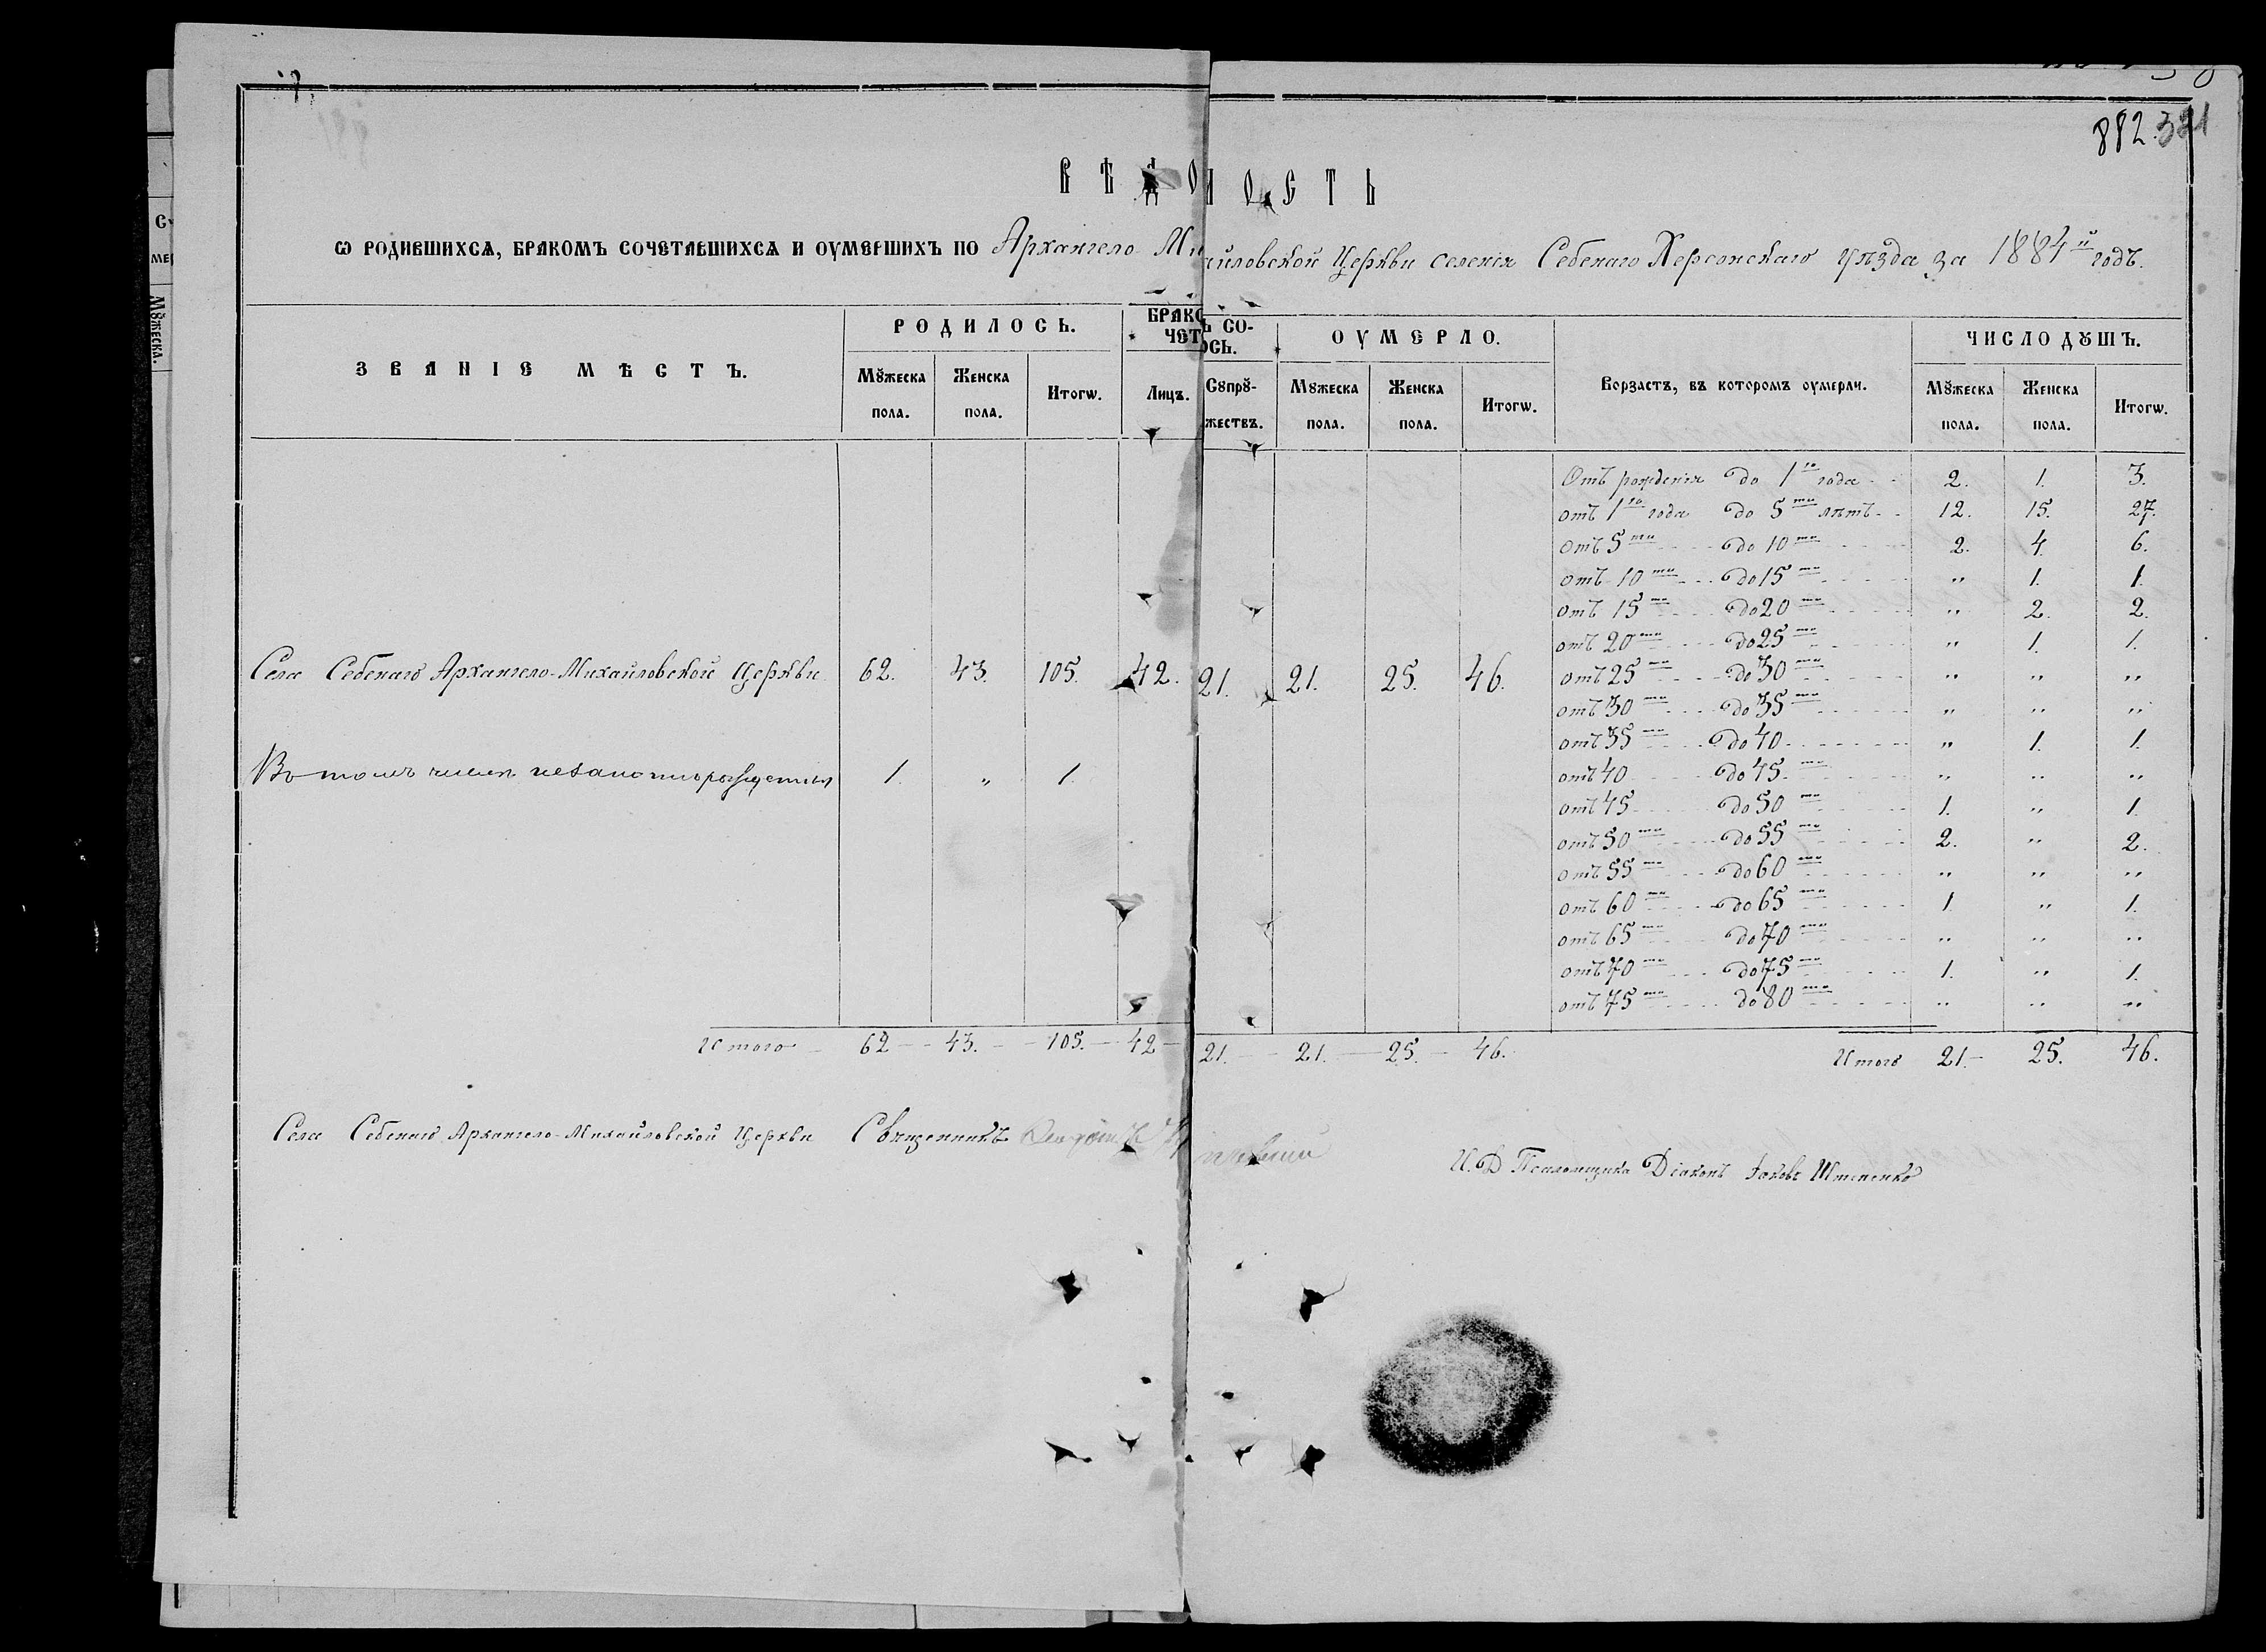 882 321
ВѢДОМОСТЬ
Ѡ РОДИВШИХСѦ, БРАКОМЪ СОЧЕТАВШИХСѦ И ОУМЕРШИХЪ ПО Архангело-Михайловской Церкви селенія Себенаго Херсонскаго уѣзда за 1884й годъ.
ЗВАНІЕ МѢСТЪ. РОДИЛОСЬ. БРАКОМЪ СОЧЕТАЛОСЬ. ОУМЕРЛО. Ворзастъ, въ которомъ оумерли. ЧИСЛО ДꙊШЪ.
Мꙋжеска пола. Женска пола. Итогѡ. Лицъ. Сꙋпрꙋжествъ. Мꙋжеска пола. Женска пола. Итогѡ. Мꙋжеска пола. Женска пола. Итогѡ.
Отъ рожденія до 1го года 2. 1. 3.
отъ 1го года до 5ти лѣтъ 12. 15. 27.
отъ 5ти до 10ти 2. 4. 6.
отъ 10ти до 15ти „ 1. 1.
отъ 15ти до 20ти „ 2. 2.
отъ 20ти до 25ти „ 1. 1.
Села Себенаго Архангело-Михайловской Церкви 62. 43. 105. 42. 21. 21. 25. 46. отъ 25ти до 30ти „ „ „
отъ 30ти до 35ти „ „ „
отъ 35ти до 40 „ 1. 1.
Въ томъ числѣ незаконнорожденныхъ 1. „ 1. отъ 40 до 45ти „ „ „
отъ 45 до 50ти 1. „ 1.
отъ 50ти до 55ти 2. „ 2.
отъ 55ти до 60ти „ „ „
отъ 60ти до 65ти 1 „ 1.
отъ 65ти до 70ти „ „ „
отъ 70ти до 75ти 1. „ 1.
отъ 75ти до 80ти „ „ „
Итого 62 43. 105. 42 21. 21. 25. 46. Итого 21 25. 46.
Села Себенаго Архангело-Михайловской Церкви Священникъ
И. Д Псаломщика Діаконъ Іаковъ Штепенко